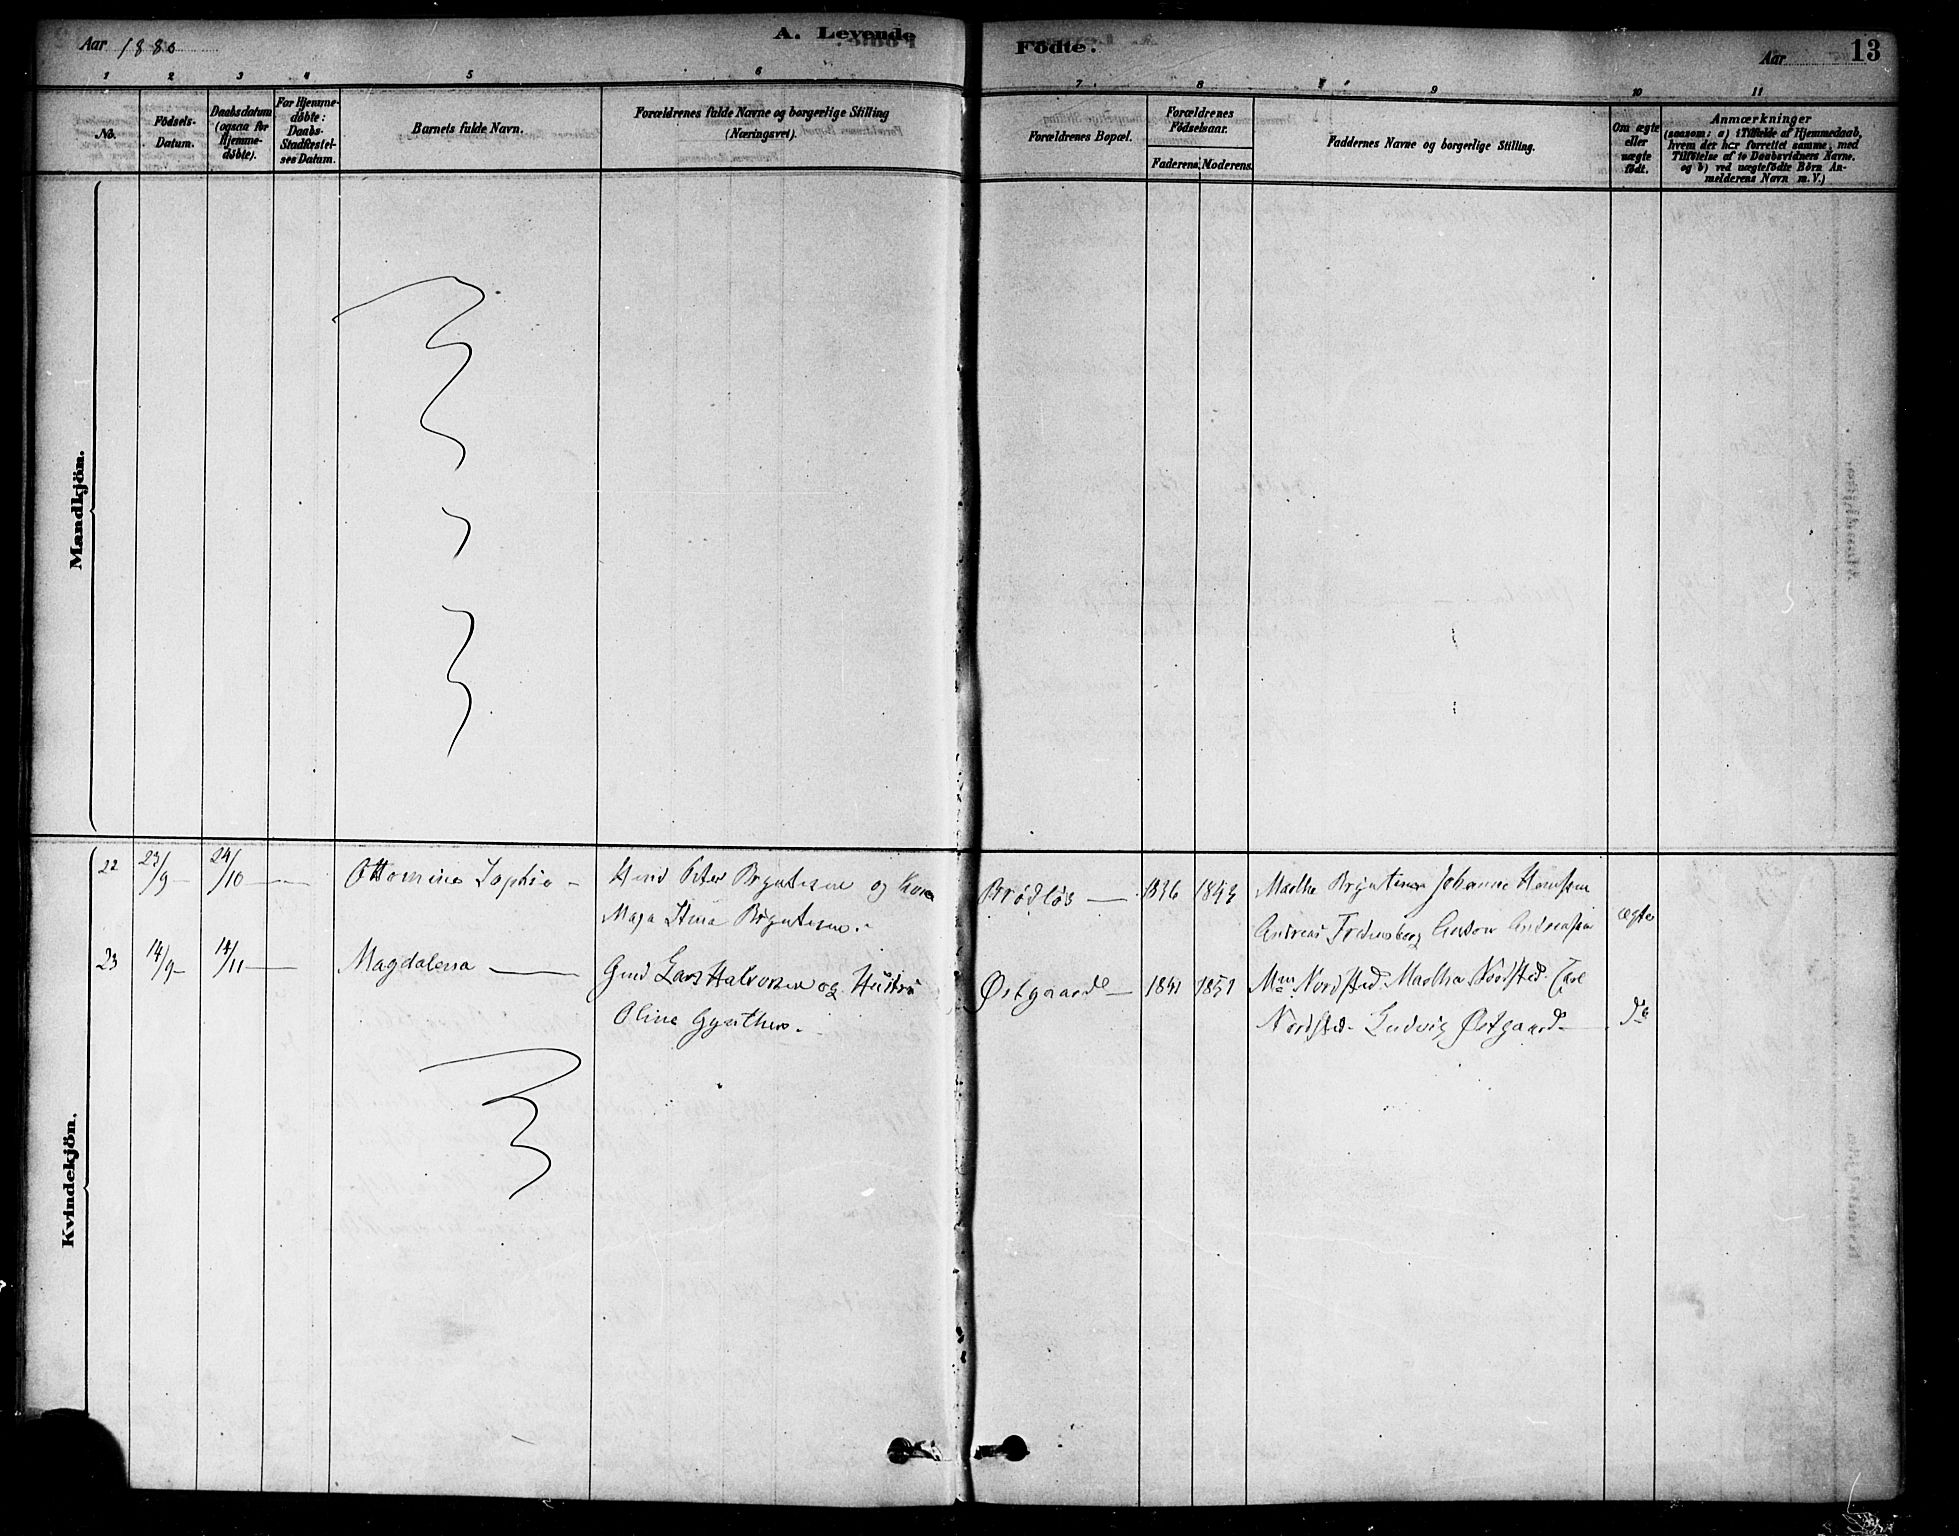 Aar 1880
A. Levende
Fødte.
Aar
13
1 2 3 4 5 6 7 8 9 10 11
No.
Fødsels-
Datum.
Daabsdatum
(ogsaa for
Hjemme-
døbte).
For Hjemme-
døbte:
Daabs-
Stadfæstel-
ses Datum.
Barnets fulde Navn.
Forældrenes fulde Navne og borgerlige Stilling
(Næringsvei).
Forældrenes Bopæl.
Forældrenes
Fødselsaar.
Faderens. Moderens.
Faddernes Navne og borgerlige Stilling.
Om ægte
eller
uægte
født.
Anmærkninger
(saasom: a) i Tilfælde af Hjemmedaab,
hvem der har forrettet samme, med
Tilføielse af to Daabsvidners Navne.
og b) ved uægtefødte Børn An-
melderens Navn m. V.)
Mandkjön.
Kvindekjön.
22 23/9 24/10 Ottomine Sophie Peter Byntesen og Kone
Maja Stina Byntesen.
Brødløs 1836 1843 Marthe Byntesen Johanne
Andreas Fredensborg Anton Andreassen ægte
23 14/9 14/11 Magdalena Gmd Lars Halvorsen og Hustru
Oline
Østgaard 1841 1851 Nordsted Marthe Nordsted Carl
Nordsted Ludvig Østgaard do